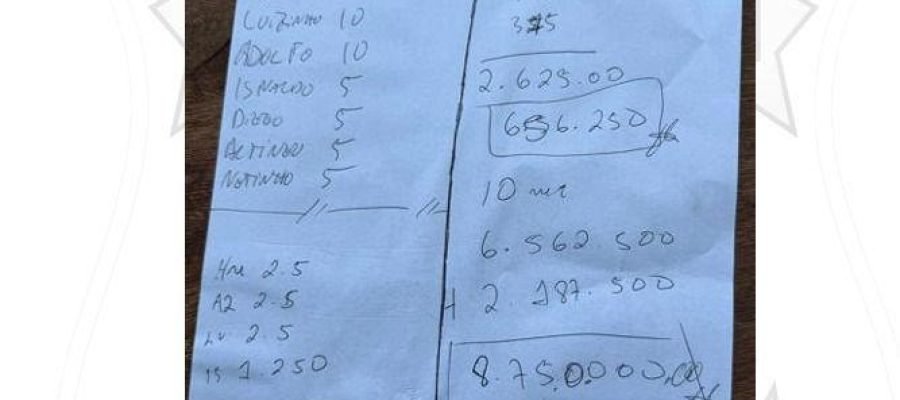 LUIZINHO 10
ADOLFO 10
ISNALDO 5
DIOGO 5
ALTINEU 5
NETINHO 5
Hm 2.5
A2 2.5
Lu 2.5
IS 1.250
375
2.625.00
656.250
10 mc
6.562.500
+ 2.187.500
8.750.000,00